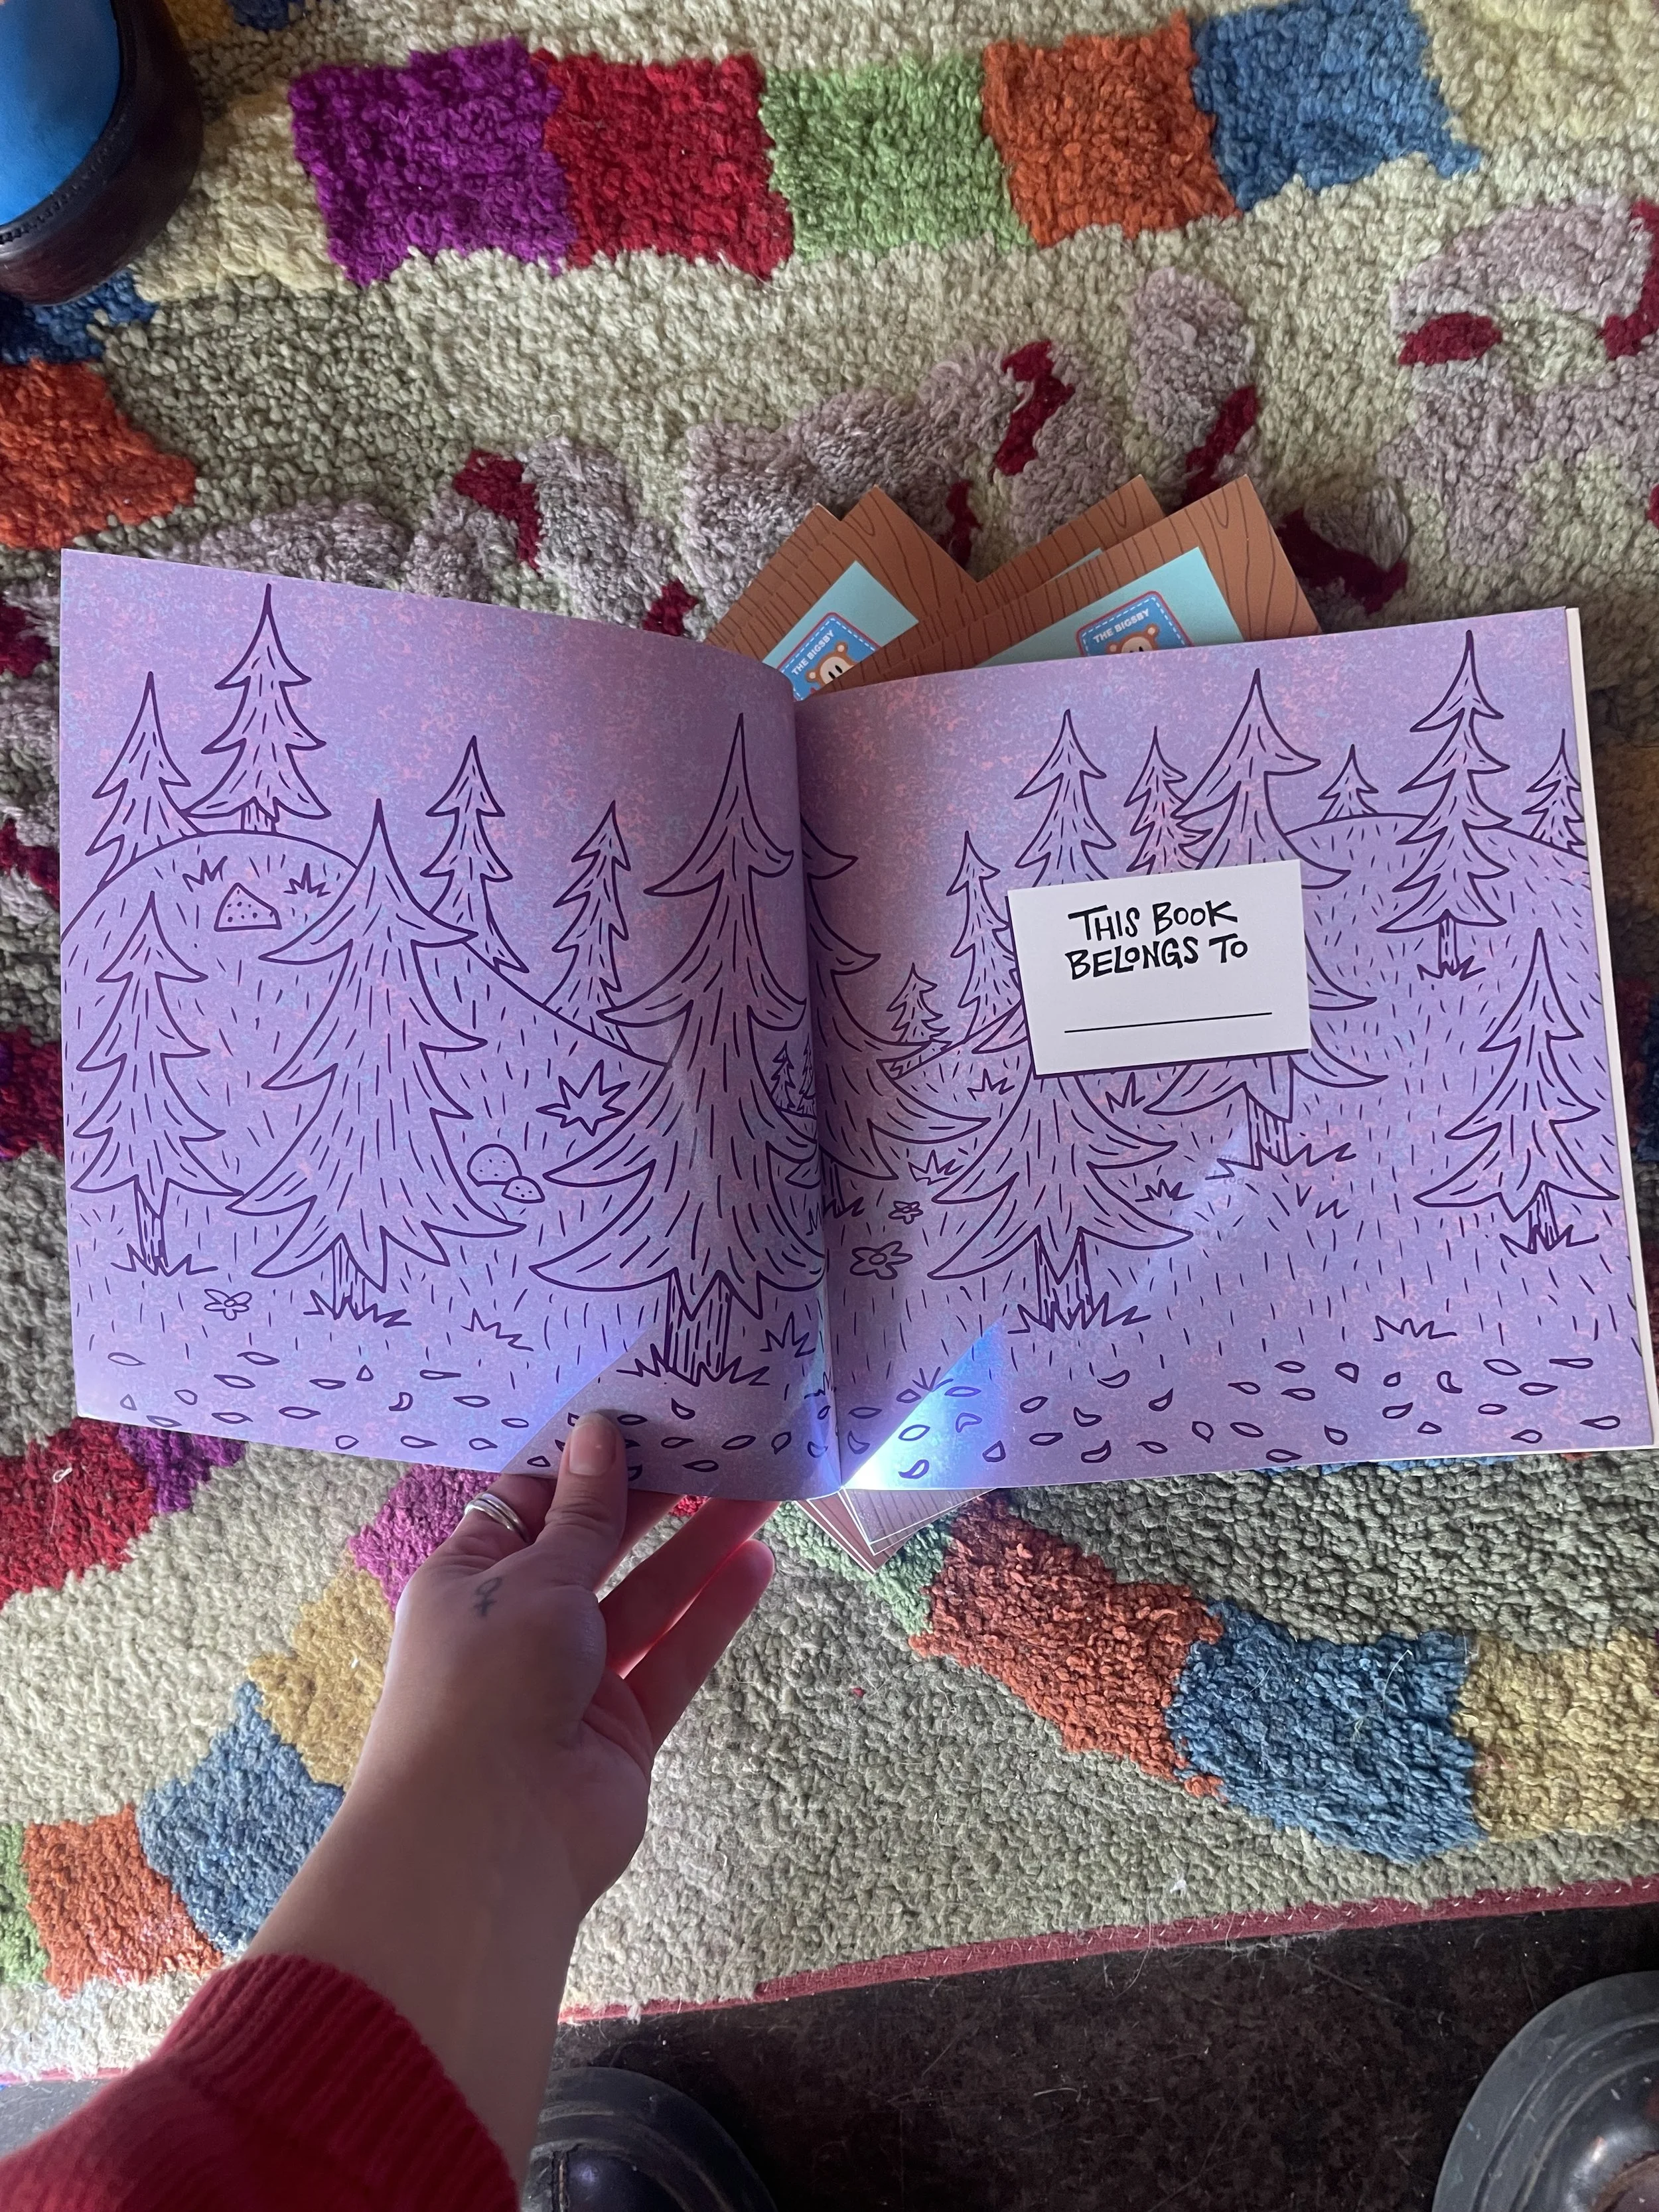 THE BIGSBY
THE BIGSBY
THIS BOOK
BELONGS TO